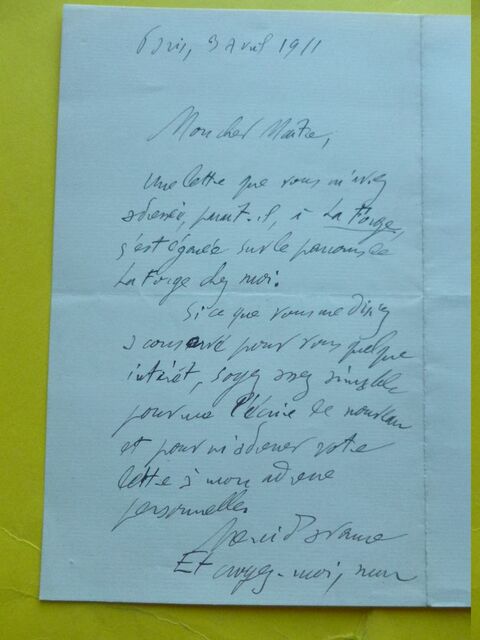 Paris, 3 Avril 1911
Mon cher Maître,
Une lettre que vous m'avez
adressée, paraît-il, à La Forge,
s'est égarée sur le parcours de
La Forge chez moi.
Si ce que vous me disiez
a conservé pour vous quelque
intérêt, soyez assez aimable
pour me l'écrire de nouveau
et pour m'adresser votre
lettre à mon adresse
personnelle.
Merci d'avance
Et croyez-moi, mon